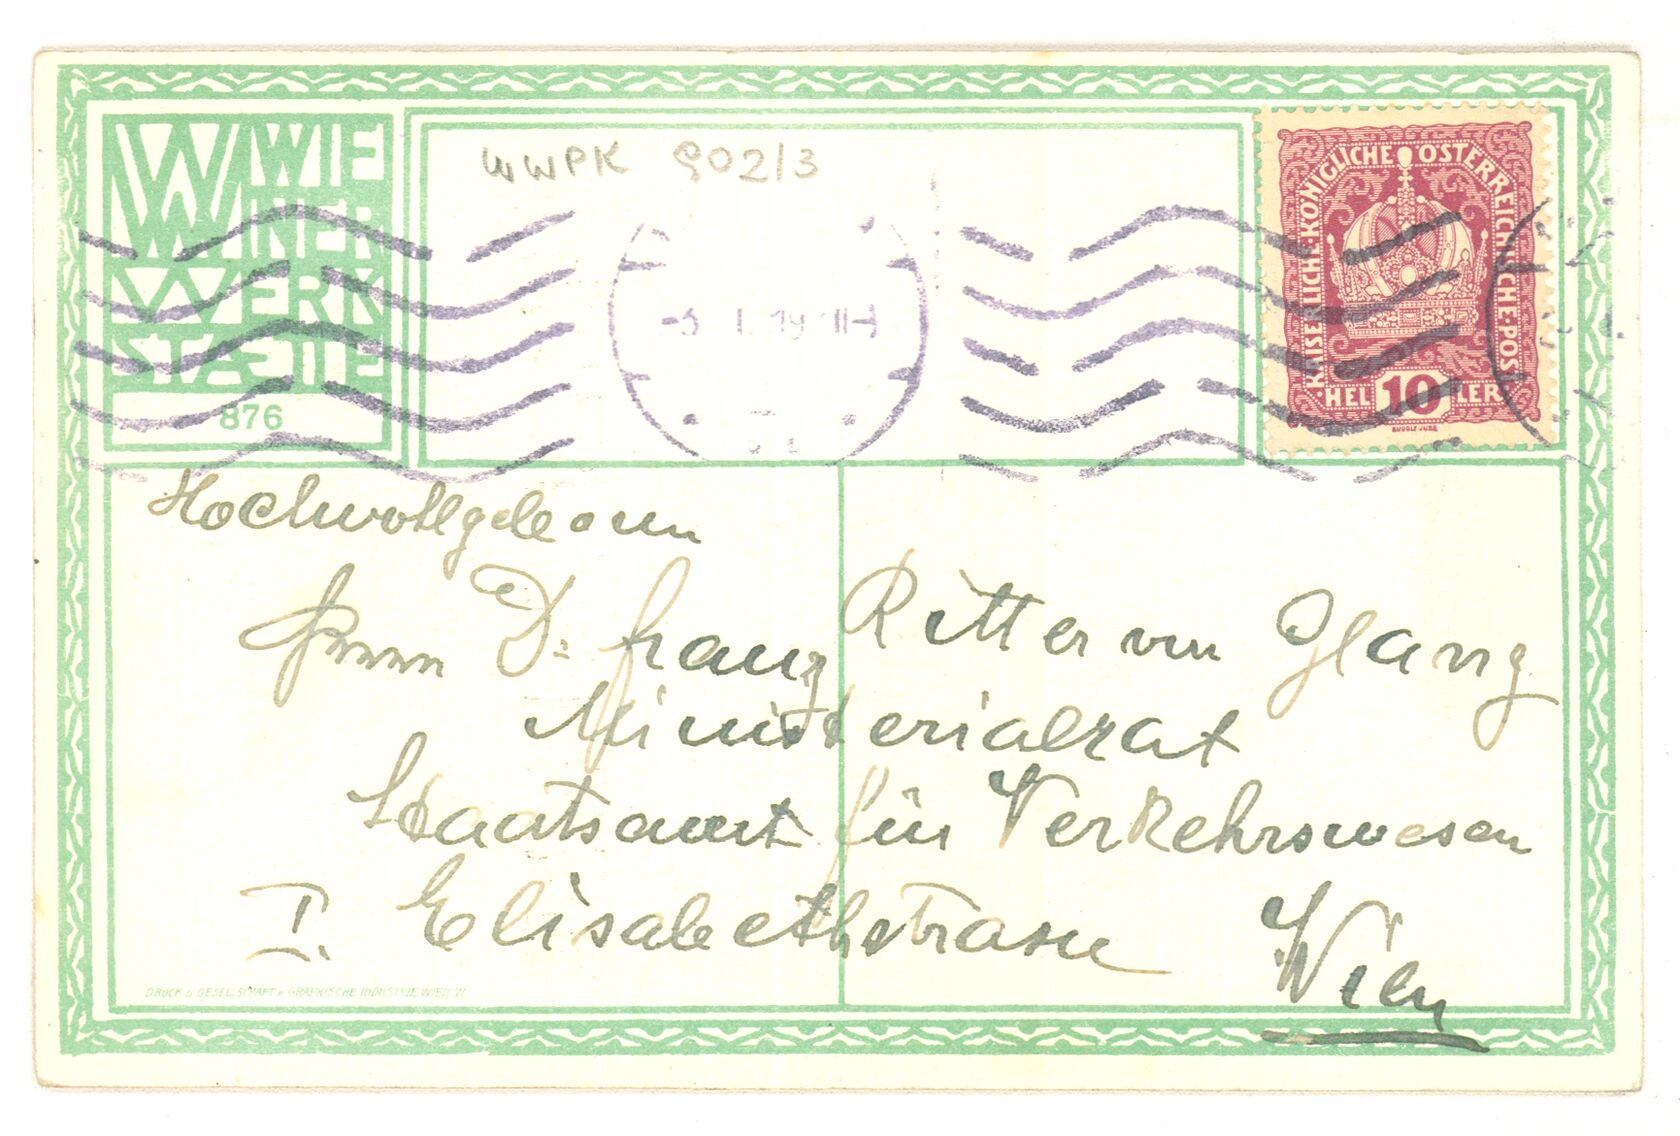 WWPK 902/3
WIE
NER
WERK
STÆTTE
876
KAISERLICHE·KÖNIGLICHE ÖSTERREICHISCHE·POST
HEL 10 LER
RUDOLF JUNK
Hochwohlgeboren
Herrn Dr. Franz Ritter von
Ministerialrat
Staatsamt für Verkehrswesen
I. Elisabethstrasse Wien
DRUCK D. GESELLSCHAFT F. GRAPHISCHE INDUSTRIE WIEN VI.